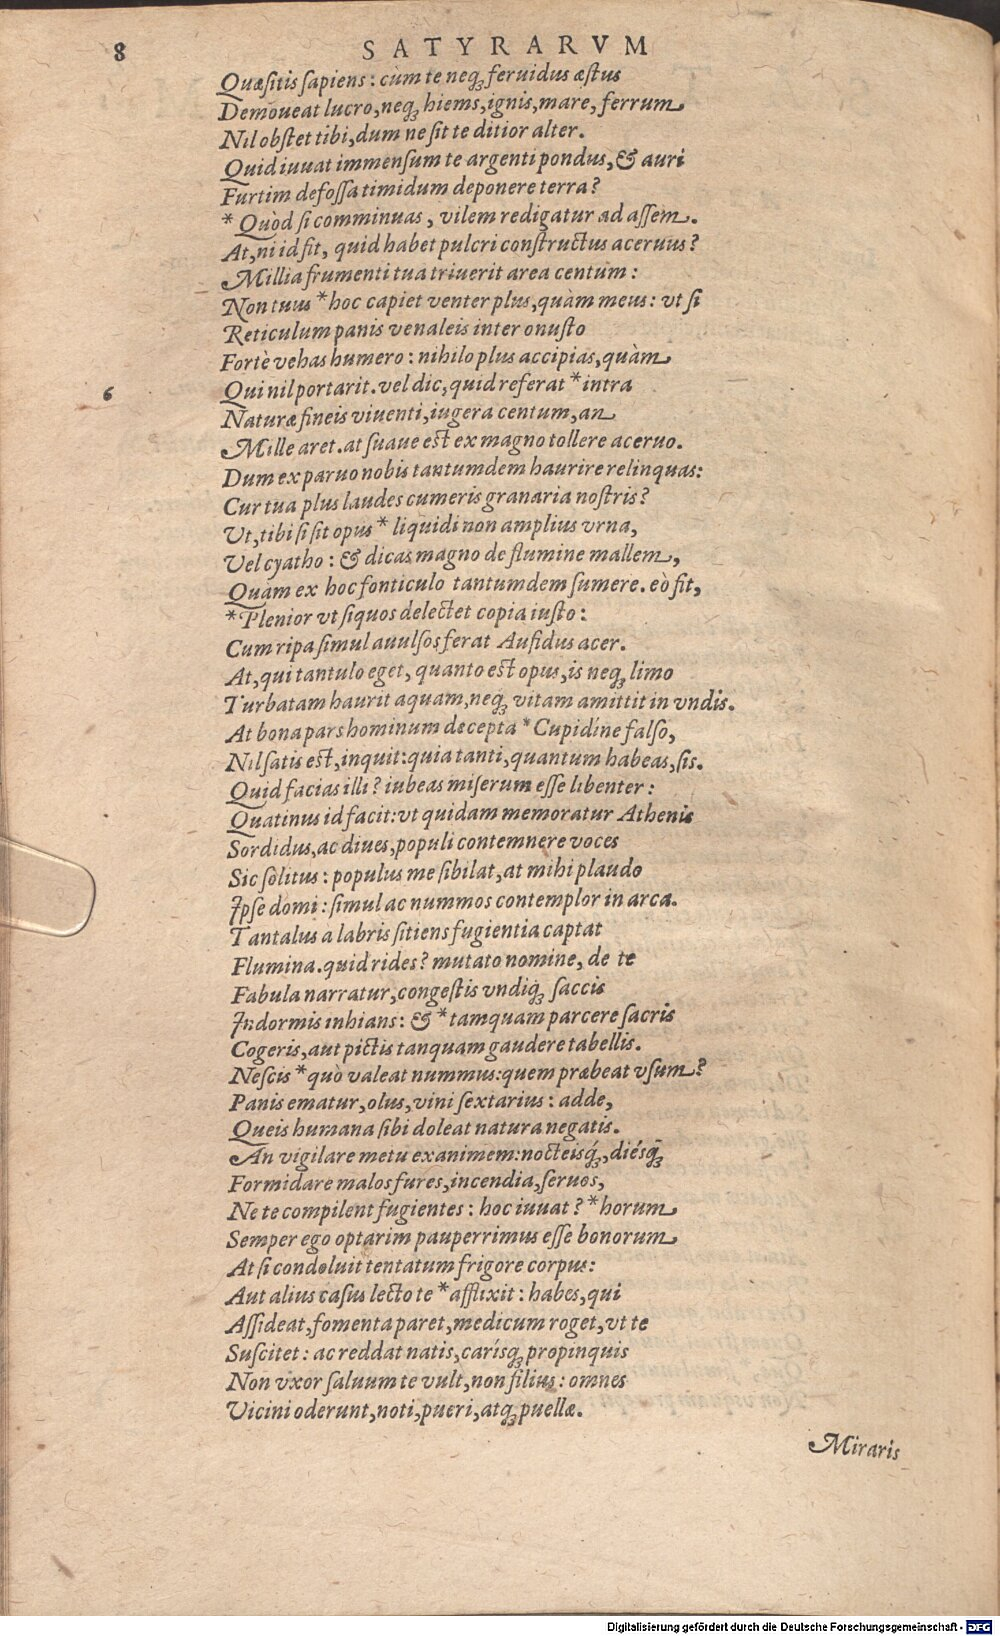 8 SATYRARVM
Quæsitis sapiens: cùm te neq; feruidus æstus
Demoueat lucro, neq; hiems, ignis, mare, ferrum
Nil obstet tibi, dum ne sit te ditior alter.
Quid iuuat immensum te argenti pondus, & auri
Furtim defossa timidum deponere terra?
* Quòd si comminuas, vilem redigatur ad assem.
At, ni id fit, quid habet pulcri constructus aceruus?
Millia frumenti tua triuerit area centum:
Non tuus * hoc capiet venter plus, quàm meus: vt si
Reticulum panis venaleis inter onusto
Fortè vehas humero: nihilo plus accipias, quàm
6 Qui nil portarit. vel dic, quid referat * intra
Naturæ fineis viuenti, iugera centum, an
Mille aret. at suaue est ex magno tollere aceruo.
Dum ex paruo nobis tantumdem haurire relinquas:
Cur tua plus laudes cumeris granaria nostris?
Vt, tibi si sit opus * liquidi non amplius vrna,
Vel cyatho: & dicas magno de flumine mallem,
Quàm ex hoc fonticulo tantumdem sumere. eò fit,
* Plenior vt siquos delectet copia iusto:
Cum ripa simul auulsos ferat Aufidus acer.
At, qui tantulo eget, quanto est opus, is neq; limo
Turbatam haurit aquam, neq; vitam amittit in vndis.
At bona pars hominum decepta * Cupidine falso,
Nil satis est, inquit: quia tanti, quantum habeas, sis.
Quid facias illi? iubeas miserum esse libenter:
Quatinus id facit: vt quidam memoratur Athenis
Sordidus, ac diues, populi contemnere voces
Sic solitus: populus me sibilat, at mihi plaudo
Ipse domi: simul ac nummos contemplor in arca.
Tantalus a labris sitiens fugientia captat
Flumina. quid rides? mutato nomine, de te
Fabula narratur, congestis vndiq; saccis
Indormis inhians: & * tamquam parcere sacris
Cogeris, aut pictis tanquam gaudere tabellis.
Nescis * quò valeat nummus: quem præbeat vsum?
Panis ematur, olus, vini sextarius: adde,
Queis humana sibi doleat natura negatis.
An vigilare metu exanimem: nocteisq́;, diésq́;
Formidare malos fures, incendia, seruos,
Ne te compilent fugientes: hoc iuuat? * horum
Semper ego optarim pauperrimus esse bonorum
At si condoluit tentatum frigore corpus:
Aut alius casus lecto te * afflixit: habes, qui
Assideat, fomenta paret, medicum roget, vt te
Suscitet: ac reddat natis, carísq; propinquis
Non vxor saluum te vult, non filius: omnes
Vicini oderunt, noti, pueri, atq; puellæ.
Miraris
Digitalisierung gefördert durch die Deutsche Forschungsgemeinschaft - DFG